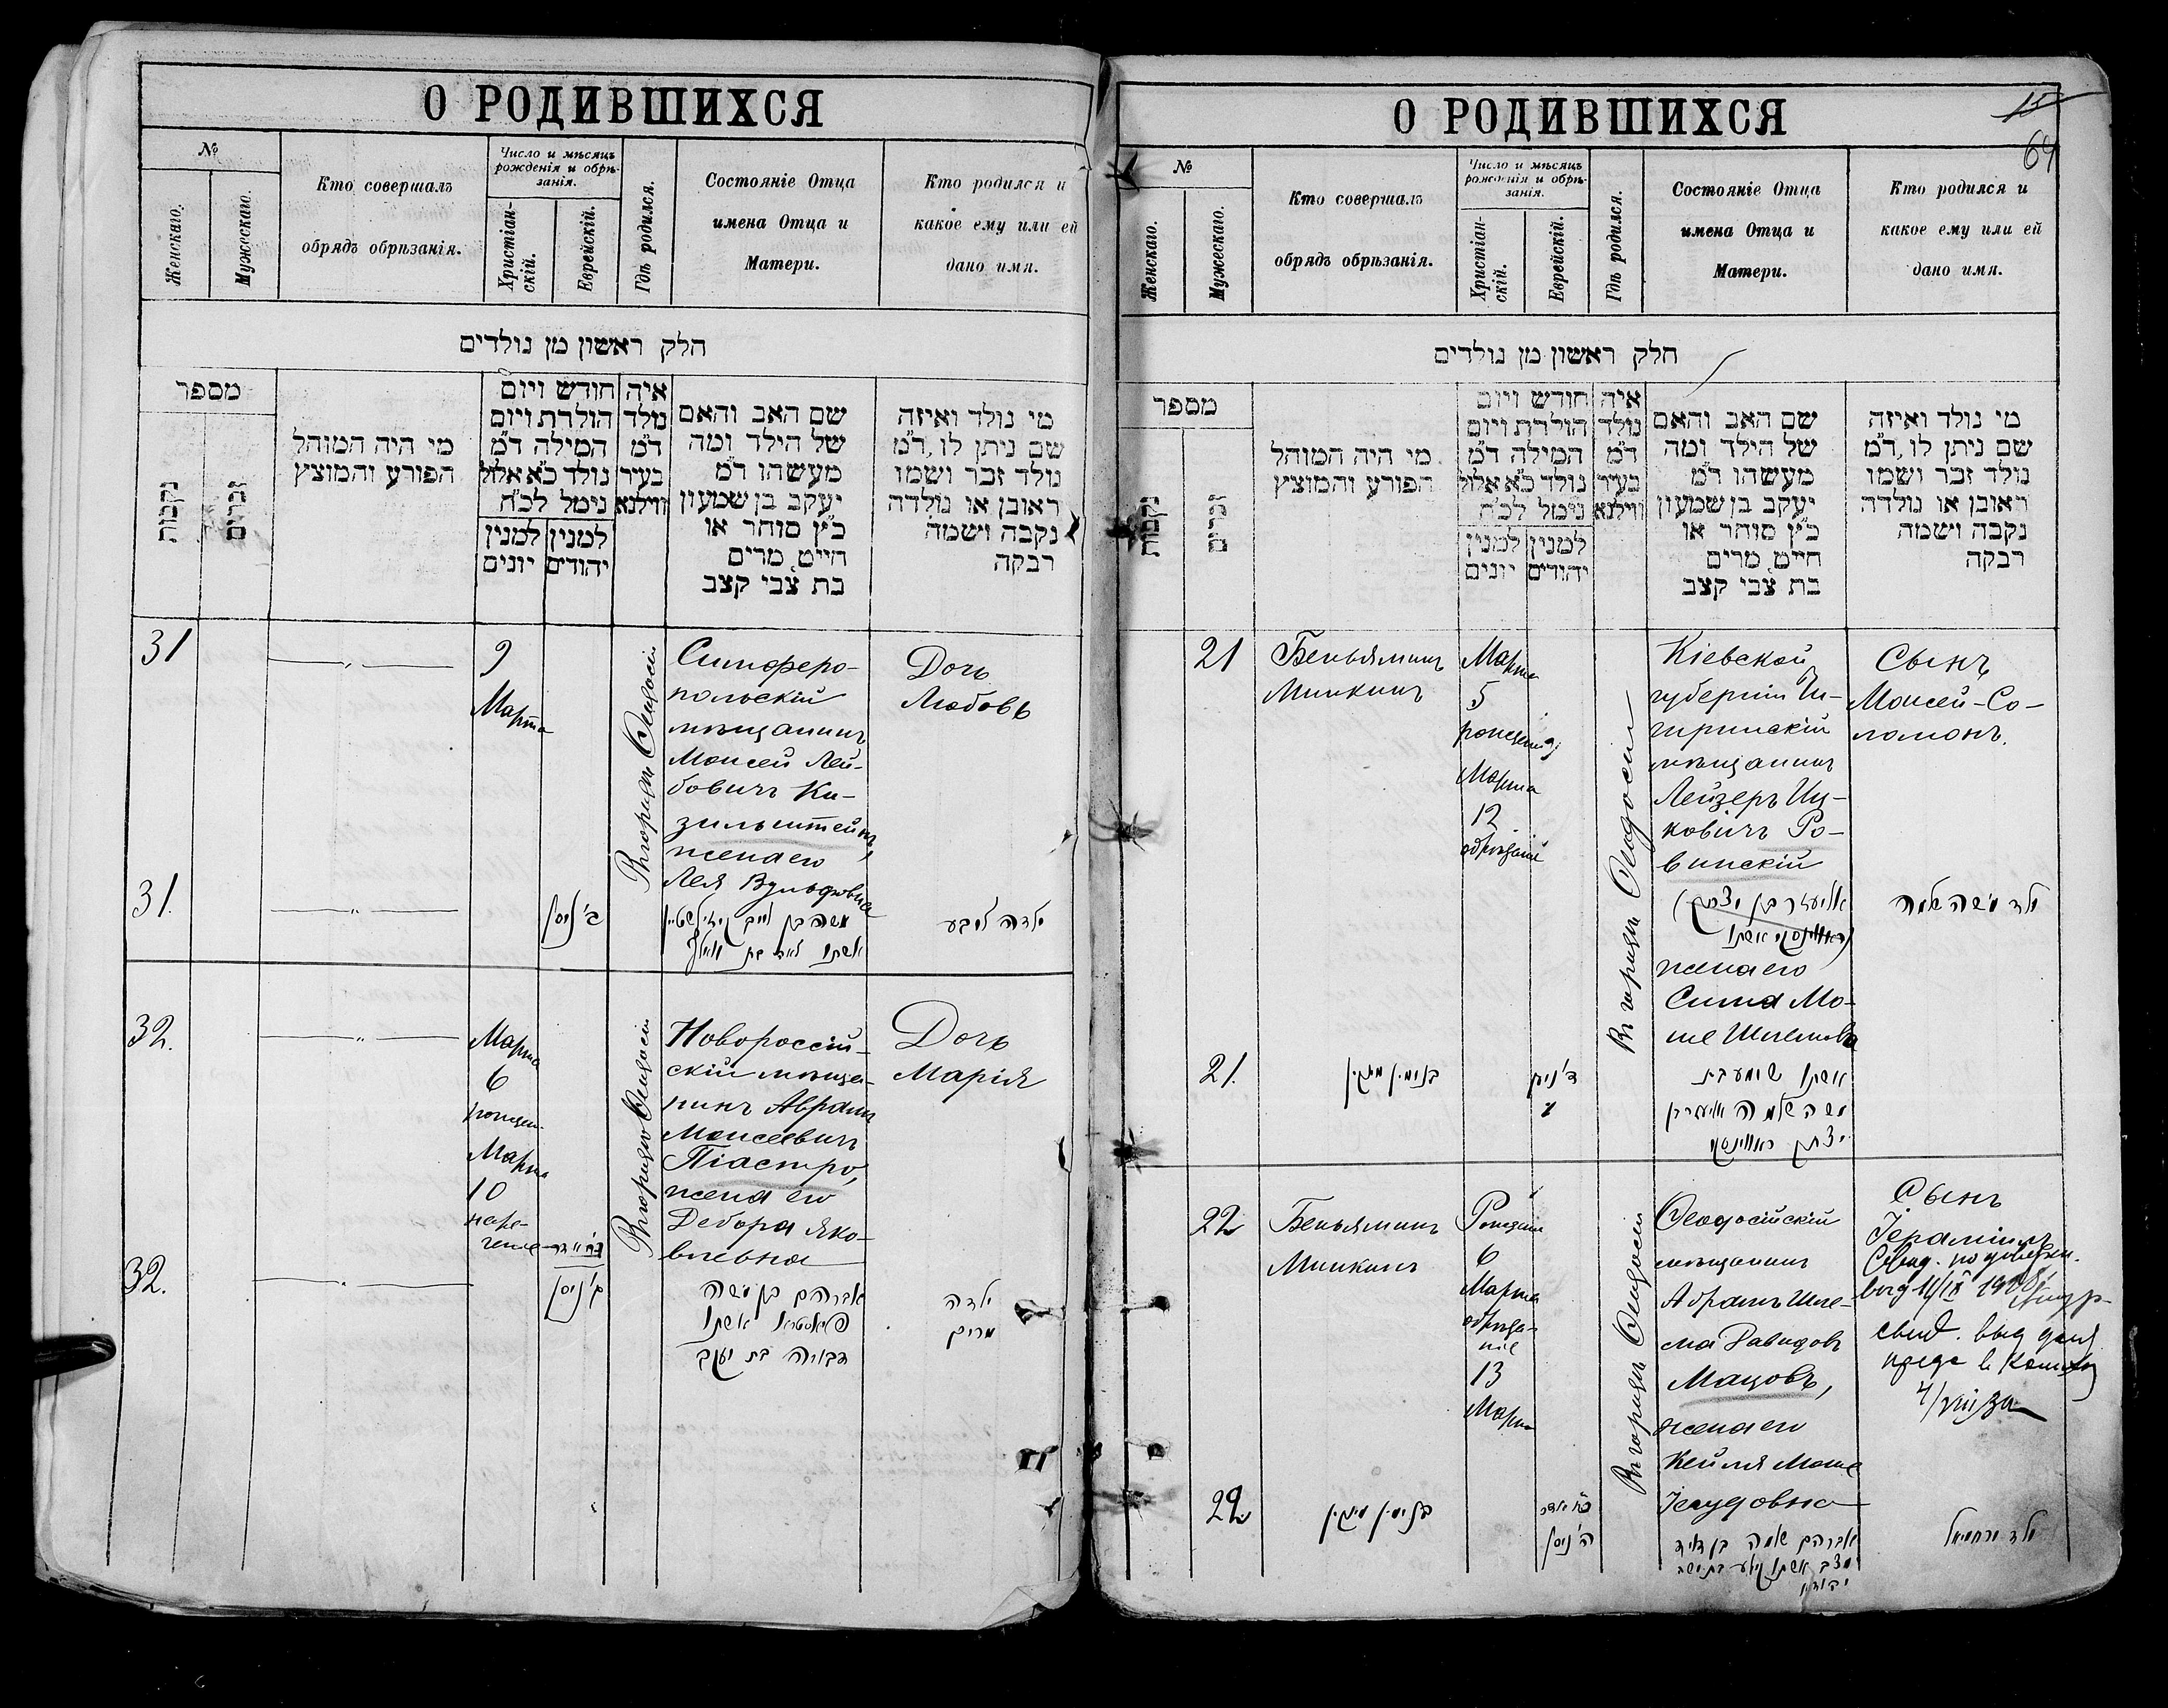 О РОДИВШИХСЯ
№
Женскаго.
Мужескаго.
Кто совершалъ
обрядъ обрѣзанія.
Число и мѣсяцъ
рожденія и обрѣ-
занія.
Христіан-
скій.
Еврейскій.
Гдѣ родился.
Состояніе Отца
имена Отца и
Матери.
Кто родился и
какое ему или ей
дано имя.
חלק ראשון מן נולדים
מספר
נקבות
זכרים
מי היה המוהל
הפורע והמוצץ
חודש ויום
הולדת ויום
המילה ד״מ
נולד כ״א אלול
נימל לכ״ח
למנין יהודים
למנין יונים
איה
נולד
ד״מ
בעיר
ווילנא
שם האב והאם
של הילד ומה
מעשהו ד״מ
יעקב בן שמעון
כ״ץ סוחר או
חייט, מרים
בת צבי קצב
מי נולד ואיזה
שם ניתן לו, ד״מ
נולד זכר ושמו
ראובן או נולדה
נקבה ושמה
רבקה
31
9
Марта
Въ городѣ Ѳеодосіи
Симферо-
польскій
мѣщанинъ
Моисей Лей-
бовичъ Ки-
зильштейнъ,
жена его
Лея Вульфовна
Дочь
Любовь
31.
ב' ניסן
משה בן לייב קיזילשטיין
אשתו לאה בת וואלף
ילדה ליבע
32.
Марта
6
рожден.
Марта
10
наре-
ченіе
Въ городѣ Ѳеодосіи
Новороссій-
скій мѣща-
нинъ Абрамъ
Моисеевичъ
Піастро,
жена его
Дебора Яко-
влевна
Дочь
Марія
32.
אברהם בן משה
פיאסטרא אשתו
דבורה בת יעקב
ילדה
מרים
О РОДИВШИХСЯ
15
64
№
Женскаго.
Мужескаго.
Кто совершалъ
обрядъ обрѣзанія.
Число и мѣсяцъ
рожденія и обрѣ-
занія.
Христіан-
скій.
Еврейскій.
Гдѣ родился.
Состояніе Отца
имена Отца и
Матери.
Кто родился и
какое ему или ей
дано имя.
חלק ראשון מן נולדים
מספר
נקבות
זכרים
מי היה המוהל
הפורע והמוצץ
חודש ויום
הולדת ויום
המילה ד״מ
נולד כ״א אלול
נימל לכ״ח
למנין יהודים
למנין יונים
איה
נולד
ד״מ
בעיר
ווילנא
שם האב והאם
של הילד ומה
מעשהו ד״מ
יעקב בן שמעון
כ״ץ סוחר או
חייט, מרים
בת צבי קצב
מי נולד ואיזה
שם ניתן לו, ד״מ
נולד זכר ושמו
ראובן או נולדה
נקבה ושמה
רבקה
21
Беньяминъ
Минкинъ
Марта
5
рожденіе
Марта
12
обрѣзаніе
Въ городѣ Ѳеодосіи
Кіевской
губерніи Чи-
гиринскій
мѣщанинъ
Лейзеръ Иц-
ковичъ Ро-
винскій
אליעזר בן יצחק
ראווינסקי אשתו
жена его
Сима Мо-
Сынъ
Моисей-Со-
ломонъ.
ילד משה שלמה
21.
בנימין מינקין
22
Беньяминъ
Минкинъ
Рожденіе
6
Марта
обрѣза-
ніе
13
Марта
Въ городѣ Ѳеодосіи
Ѳеодосійскій
мѣщанинъ
Абрамъ Шле-
ма Давидовъ
Мацовъ,
жена его
Кейля Моше
Іегудовна
Сынъ
22
בנימין מינקין
ה' ניסן
אברהם שלמה בן דוד
ילד ירחמיאל